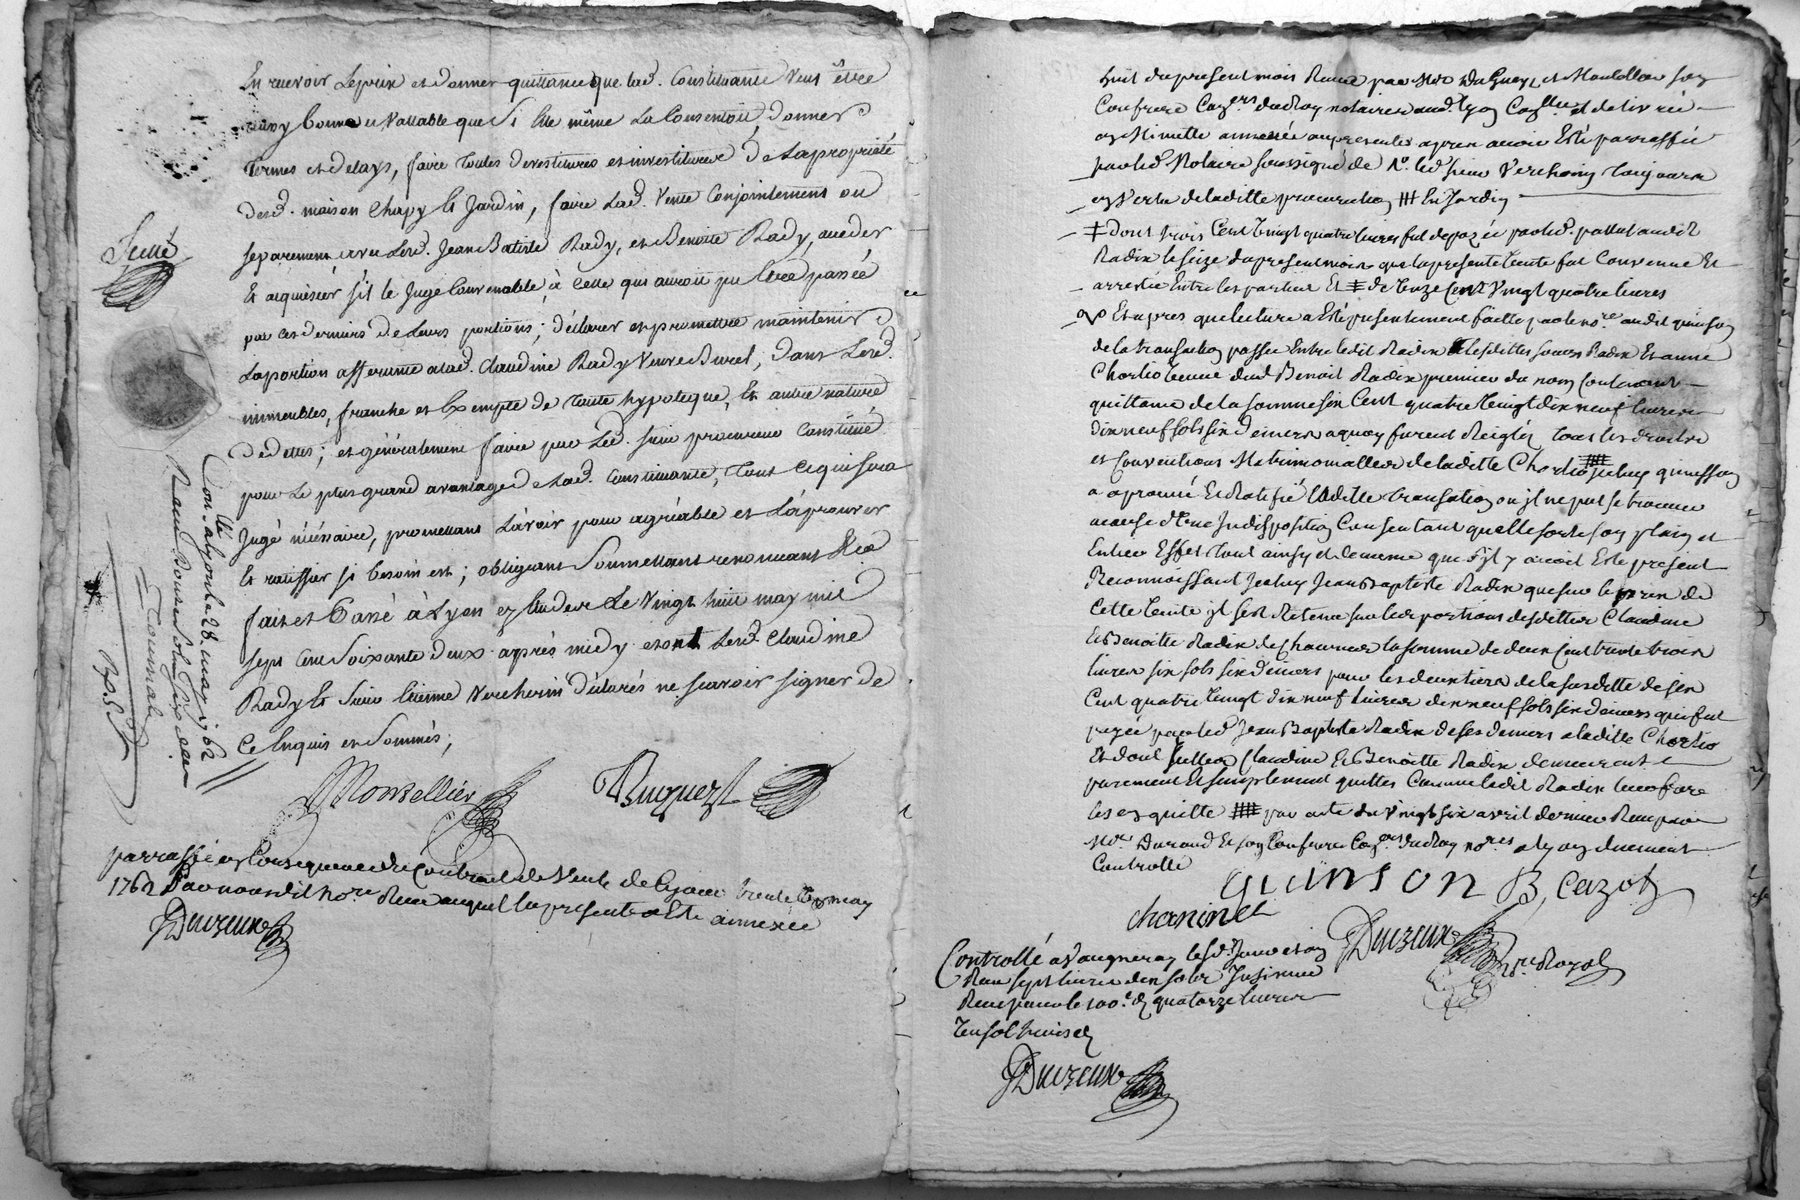 En recevoir Le prix et donner quittance que lad. Constituante Veut être
aussy bonne et Vallable que Si Elle même La Consentoit, donner
termes et delays, faire toutes devestitures et investitures de La propriété
desd. maison Chapy et Jardin, faire Lad. Vente Conjointement ou
separement avec Led. Jean Batiste Rady, et Benoite Rady, aceder
Et acquiescer s'il le Juge Convenable, à Celle qui auroit pu Etre passée
par ces derniers de Leurs portions; déclarer et promettre maintenir
La portion afferante a lad. Claudine Rady Veuve Burel, dans Lesd.
immeubles, franche et Exempte de toute hypoteque, Et autre nature
de dettes; et généralement faire par Led. sieur procureur Constitué
pour Le plus grand avantage de Lad. Constituante, tout ce qui sera
Jugé nécessaire, promettant L'avoir pour agréable et L'aprouver
Et ratiffier si besoin est; obligeant Soumettant renonceant &ca
fait et Passé à Lyon ez Etudes Le Vingt huit may mil
sept Cent Soixante deux après midy et ont Lesd. Claudine
Rady et Sieur Etienne Vercherin déclarés ne scavoir signer de
Ce Enquis et Sommés;
Scellé
Con.llé a Lyon le 28 may 1762
Monsellier
Bucquet
parraffé en Consequence du Contract de Vente de Ce jour trente may
1762 Par nous dit no.re Receu auquel la presente a Esté annexée
Duczeux
huit du present mois Receu par Me Duguey et son
Confrere Con.ers du Roy notaires aud. Lyon et delivrée
en Minutte annexée au presentes apres avoir Esté parraffée
par led. Notaire Soussigné de No. led. sieur Vercherin
en Vertu de laditte procuration Et Jardin
dont trois Cent Vingt quatre livres fut depozée par led.
Radix le seize du present mois que la presente Vente fut Convenue Et
arrestée Entre les parties Et de Onze Cent Vingt quatre livres
Et apres que lecture a Esté presentement faitte par le no.re audit quinson
de la transaction passée Entre ledit Radix lesdittes soeurs Radix Et anne
Chortio Veuve dud. Benoit Radix premier du nom Contenant
quittance de la somme six Cent quatre Vingt dix neuf livres
dix neuf sols six deniers a quoy furent Reiglés tous les droits
et Conventions Matrimonialles de laditte Chortio Jceluy quinson
a aprouvé Et Ratiffié laditte transaction ou jl ne put se trouver
a cause d'Une Jndisposition Consentant quelle sorte son plain et
Entier Effet tout ainsy et de meme que s'yl y avoit Esté present
Reconnoissant Jceluy Jean Baptiste Radix que sur le prix de
Cette Vente jl s'est Retenu sur les portions desdittes Claudine
Et Benoitte Radix de Chacunes la somme de deux Cent trente trois
livres six sols six deniers pour les deux tiers de la susditte de six
Cent quatre Vingt dix neuf livres dix neuf sols six deniers qui fut
payée par led. Jean Baptiste Radix de ses deniers a laditte Chortio
Et dont Jcelles Claudine Et Benoitte Radix demeurent
purement Et simplement quittes Comme ledit Radix
les en quitte par acte du Vingt six avril dernier Receu par
Me Durand Et son Confrere Con.ers du Roy no.res a Lyon duement
Controllé
quinson B, Cazot
chaninel
Duczeux
n.re Royal
Controllé a Vaugneray le
Receu sept livres dix sols Jnsinué
Receu pour le 100.e d. quatorze livres
Duczeux